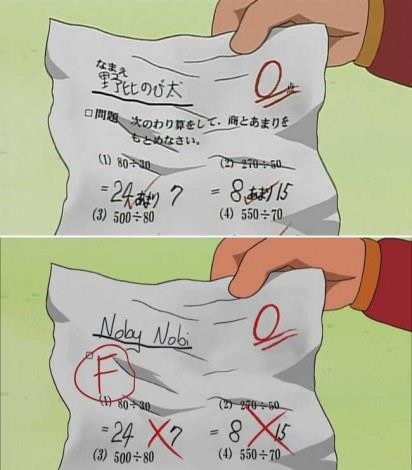 なまえ
野比のび太
0点
□問題 次のわり算をして、商とあまりを
もとめなさい。
(1) 80÷30 (2) 270÷50
=24あまり7 =8あまり15
(3) 500÷80 (4) 550÷70
Noby Nobi
0
F
(1) 80÷30 (2) 270÷50
=24 7 =8 15
(3) 500÷80 (4) 550÷70